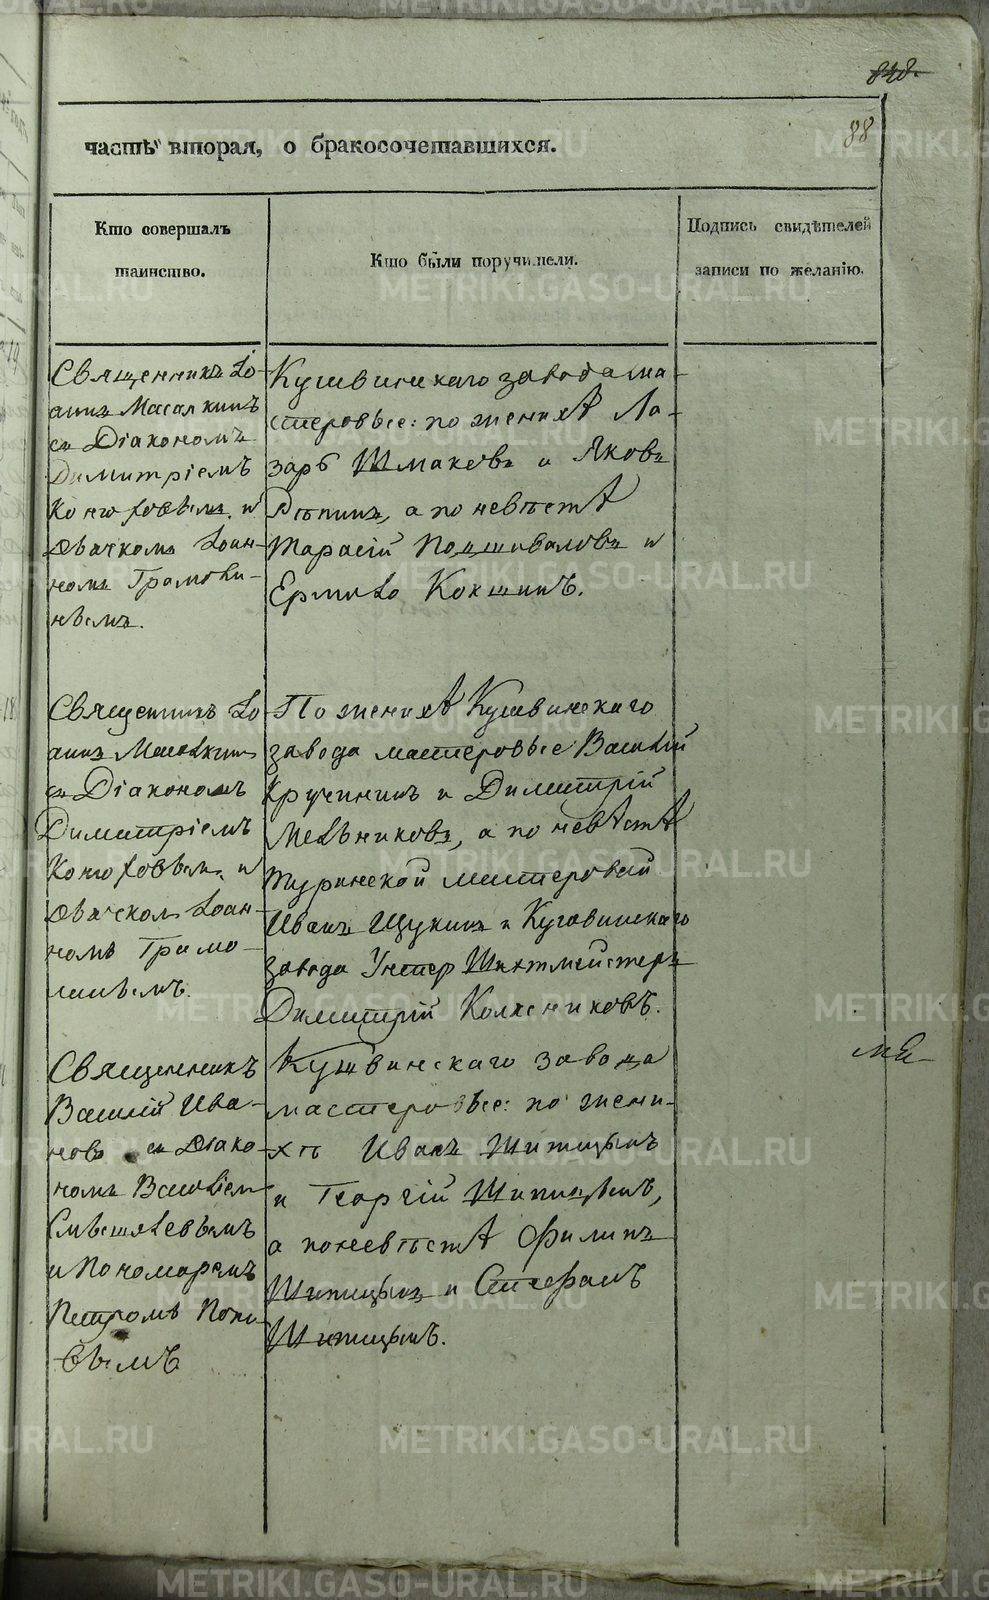 848.
88
часть вторая, о бракосочетавшихся.
Кто совершалъ
таинство.
Кто были поручители.
Подпись свидѣтелей
записи по желанію.
Священникъ Іо-
аннъ Масалкинъ
съ Діакономъ
Димитріемъ
Конюховымъ и
дьячкомъ Іоан-
номъ
нымъ.
Кушвинскаго завода ма-
стеровые: по женихѣ Ла-
зарь Шмаковъ и Яковъ
а по невѣстѣ
Тарасій Подшиваловъ и
Ермило Кокшинъ.
Священникъ Іо-
аннъ Масалкинъ
съ Діакономъ
Димитріемъ
Конюховымъ и
дьячкомъ Іоан-
номъ
По женихѣ Кушвинскаго
завода мастеровые Василій
Кручининъ и Димитрій
Мельниковъ, а по невѣстѣ
Туринской мастеровой
Иванъ Щукинъ и Кушвинскаго
завода Унтер Шихтмейстеръ
Димитрій Колесниковъ.
Священникъ
Василій Ива-
новъ съ Діако-
номъ Василіем
и Пономаремъ
Петромъ Попо-
вымъ
Кушвинскаго завода
мастеровые: по жени-
хѣ Иванъ Шипицынъ
и Георгій Шипицынъ,
а по невѣстѣ Филипъ
Шипицынъ и Стефанъ
Шипицынъ.
METRIKI.GASO-URAL.RU